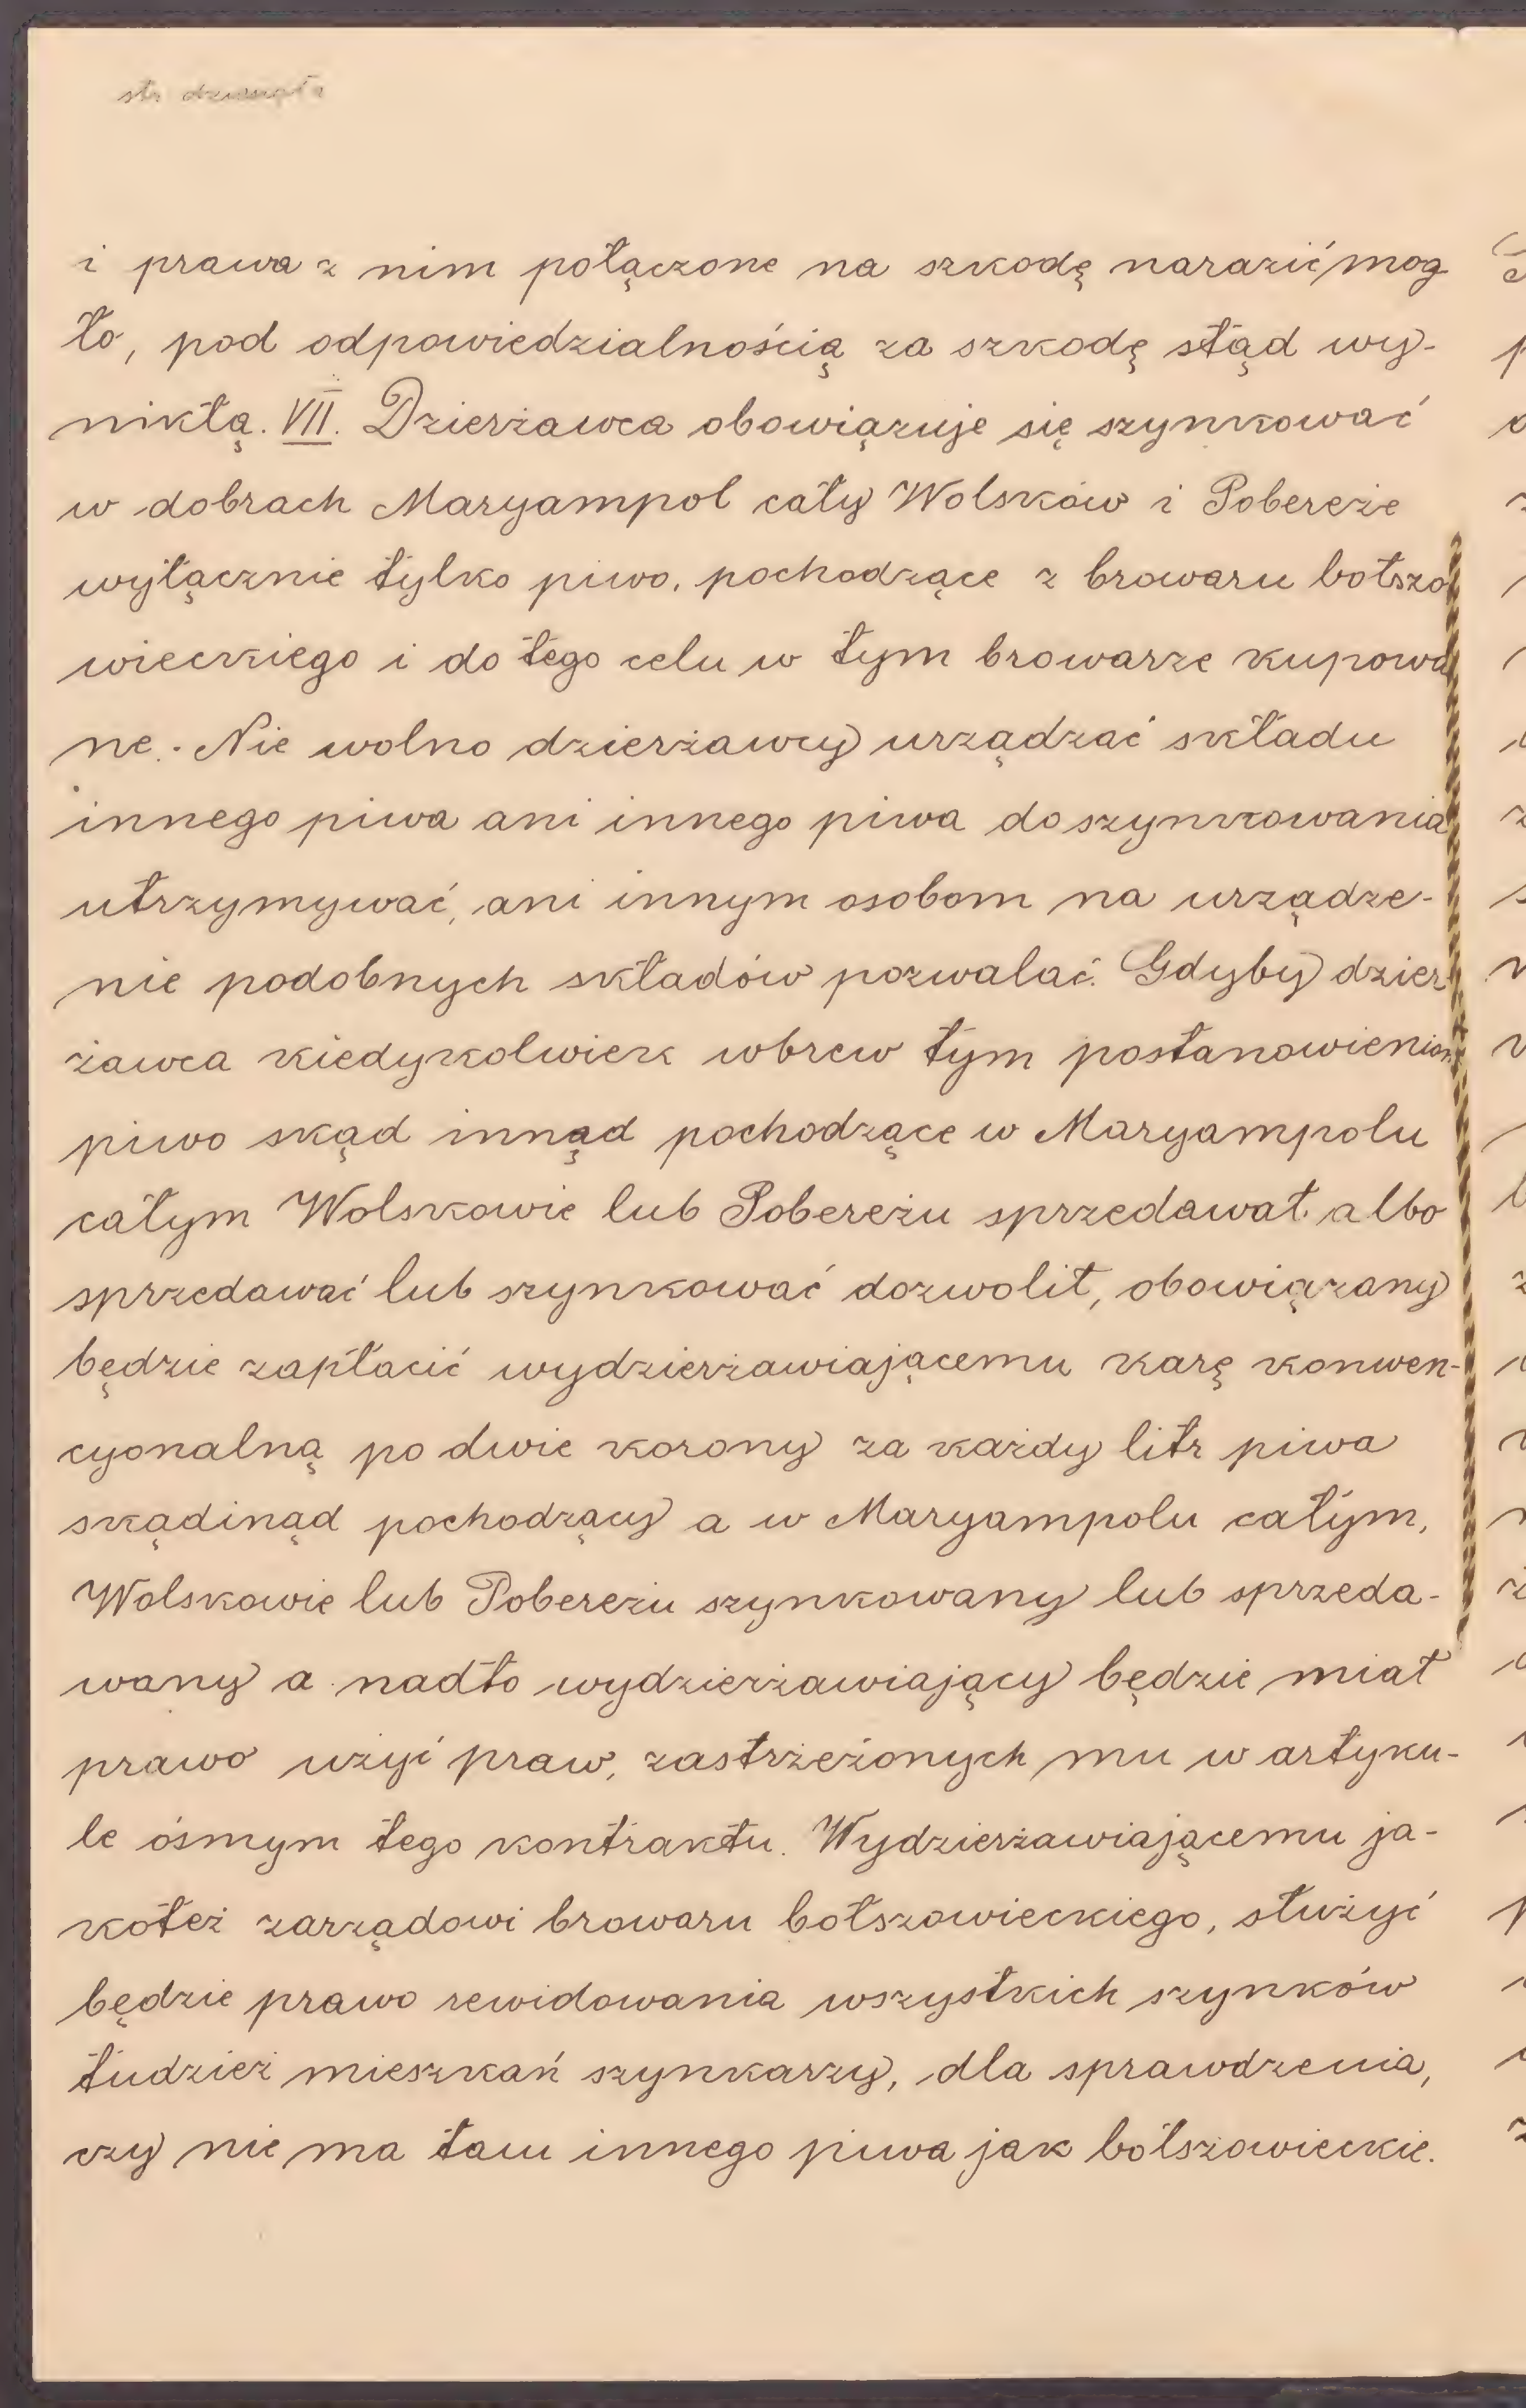 str dziesiąta
i prawa z nim połączone na szkodę narazić mog
ło, pod odpowiedzialnością za szkodę stąd wy-
nikłą. VII. Dzierżawca obowiązuje się szynkować
w dobrach Maryampol cały Wolsków i Pobereże
wyłącznie tylko piwo, pochodzące z browaru bołszo
wieckiego i do tego celu w tym browarze kupowa
ne. Nie wolno dzierżawcy urządzać składu
innego piwa ani innego piwa do szynkowania
utrzymywać, ani innym osobom na urządze-
nie podobnych składów pozwalać. Gdyby dzier
żawca kiedykolwiek wbrew tym postanowieniom
piwo skąd innąd pochodzące w Maryampolu
całym Wolskowie lub Pobereżu sprzedawał albo
sprzedawać lub szynkować dozwolił, obowiązany
będzie zapłacić wydzierżawiającemu karę konwen-
cyonalną po dwie korony za każdy litr piwa
skądinąd pochodzący a w Maryampolu całym,
Wolskowie lub Pobereżu szynkowany lub sprzeda-
wany a nadto wydzierżawiający będzie miał
prawo użyć praw, zastrzeżonych mu w artyku-
le ósmym tego kontraktu. Wydzierżawiającemu ja-
koteż zarządowi browaru bołszowieckiego, służyć
będzie prawo rewidowania wszystkich szynków
tudzież mieszkań szynkarzy, dla sprawdzenia,
czy nie ma tam innego piwa jak bołszowieckie.